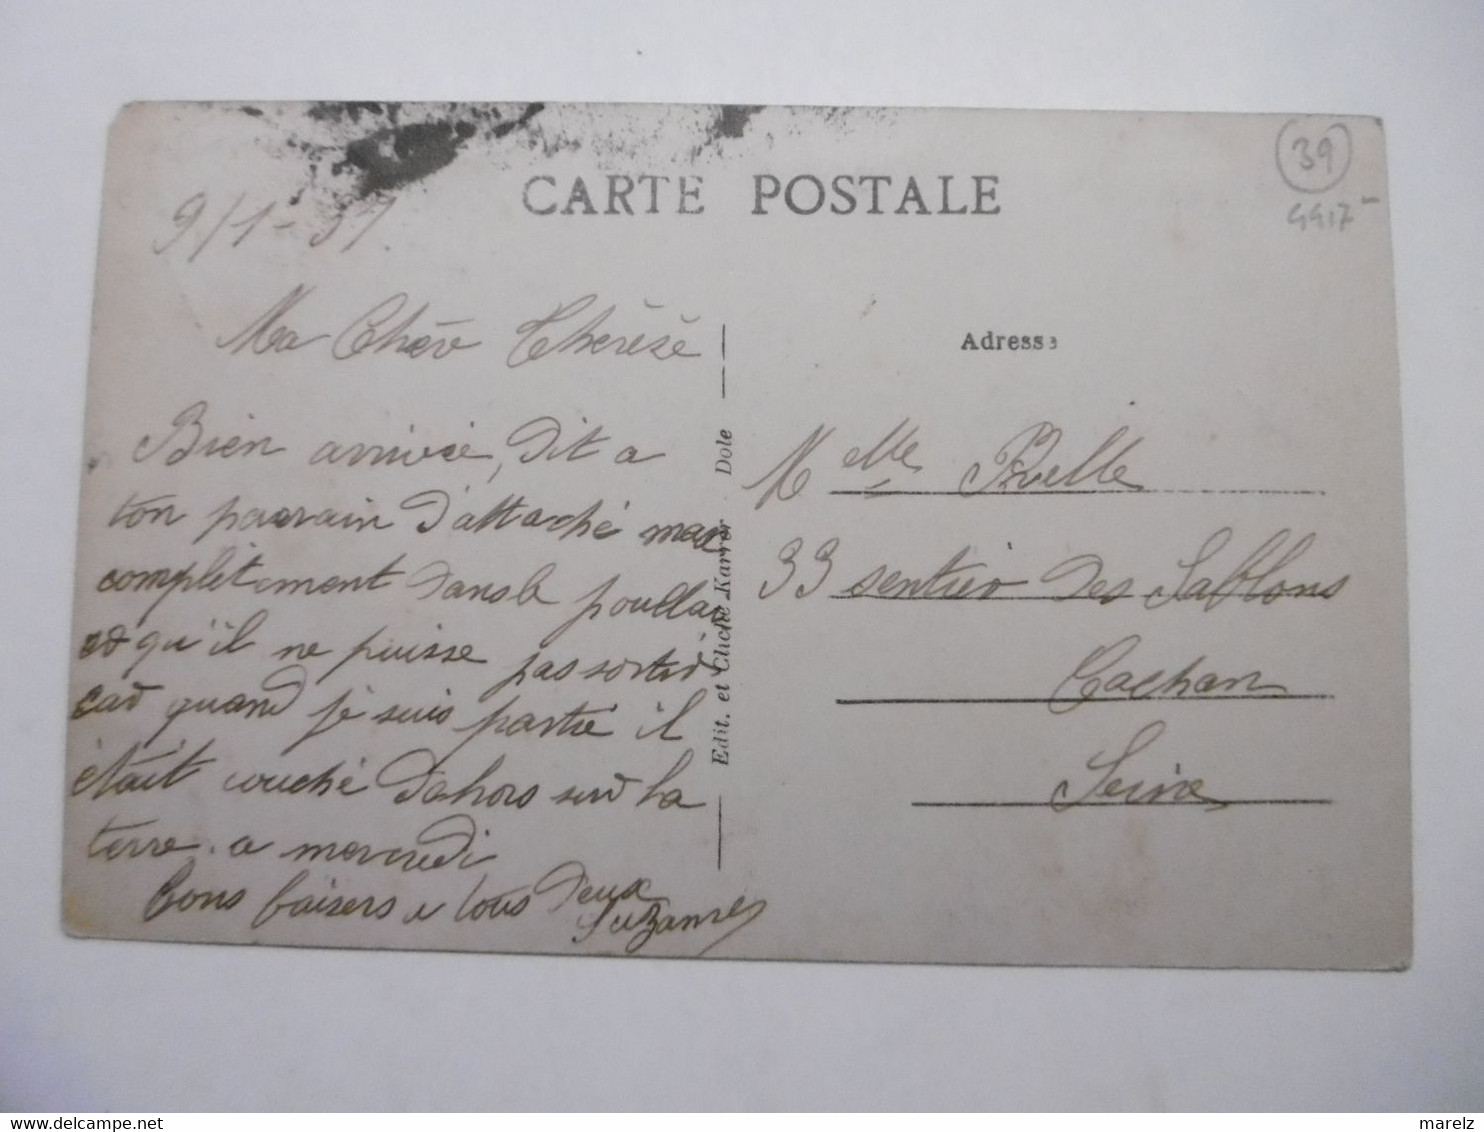 CARTE POSTALE
39
9/1-37
Ma Chère Thérèse
Bien arrivée, dit a
ton parrain d'attaché max
complètement dans le poullai
qu'il ne puisse pas sortir
car quand je suis partie il
était couché dehors sur la
terre. a mercredi
bons baisers a tous deux
Suzanne
Edit. et Cliché Karrer Dole
Adresse
Melle
33 sentier des Sablons
Cachan
Seine
marelz